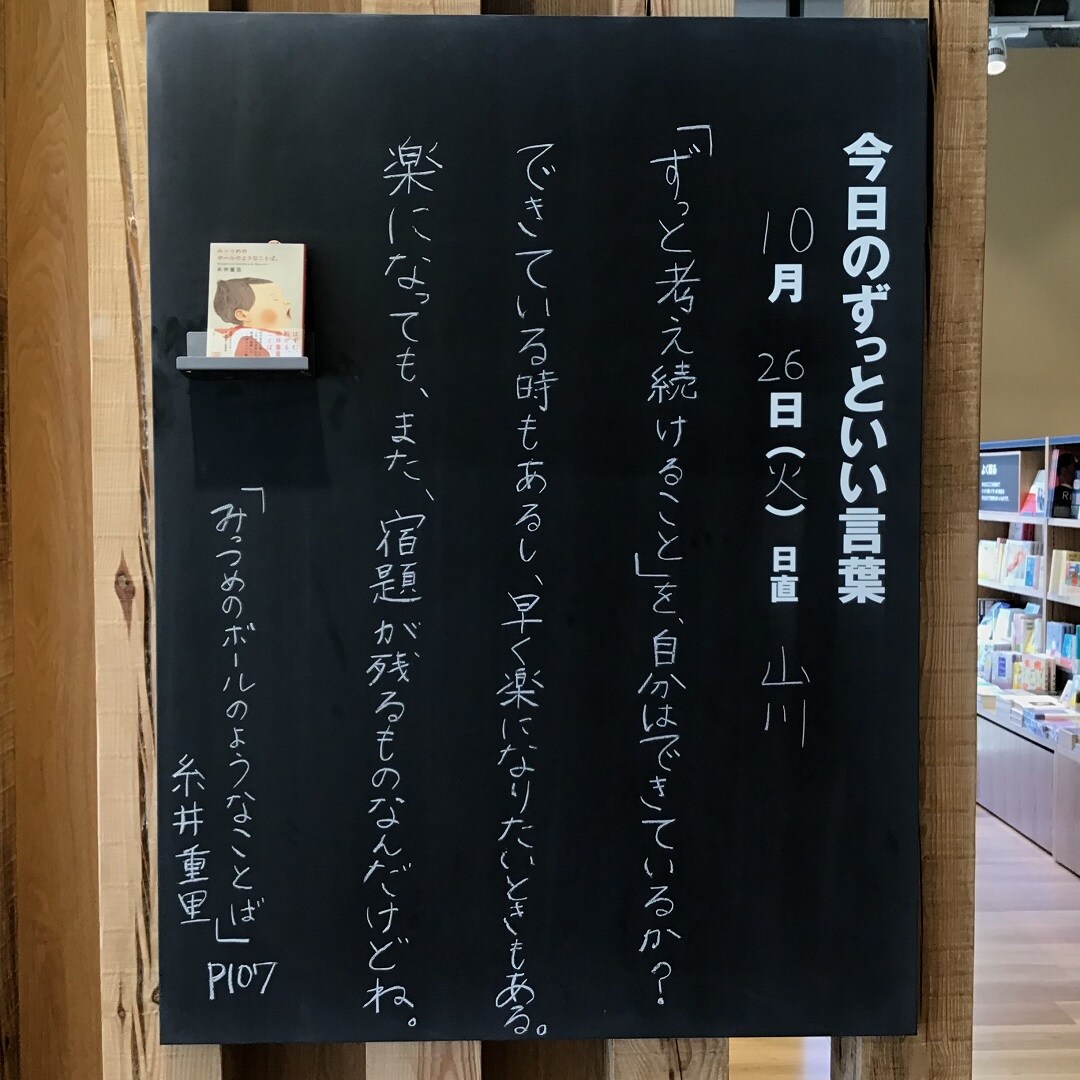 今日のずっといい言葉
10月 26日(火) 日直 山川
「ずっと考え続けること」を、自分はできているか?
できている時もあるし、早く楽になりたいときもある。
楽になっても、また、宿題が残るものなんだけどね。
「みっつめのボールのようなことば」
糸井重里
P107
みっつめの
ボールのようなことば。
糸井重里
よく眠る